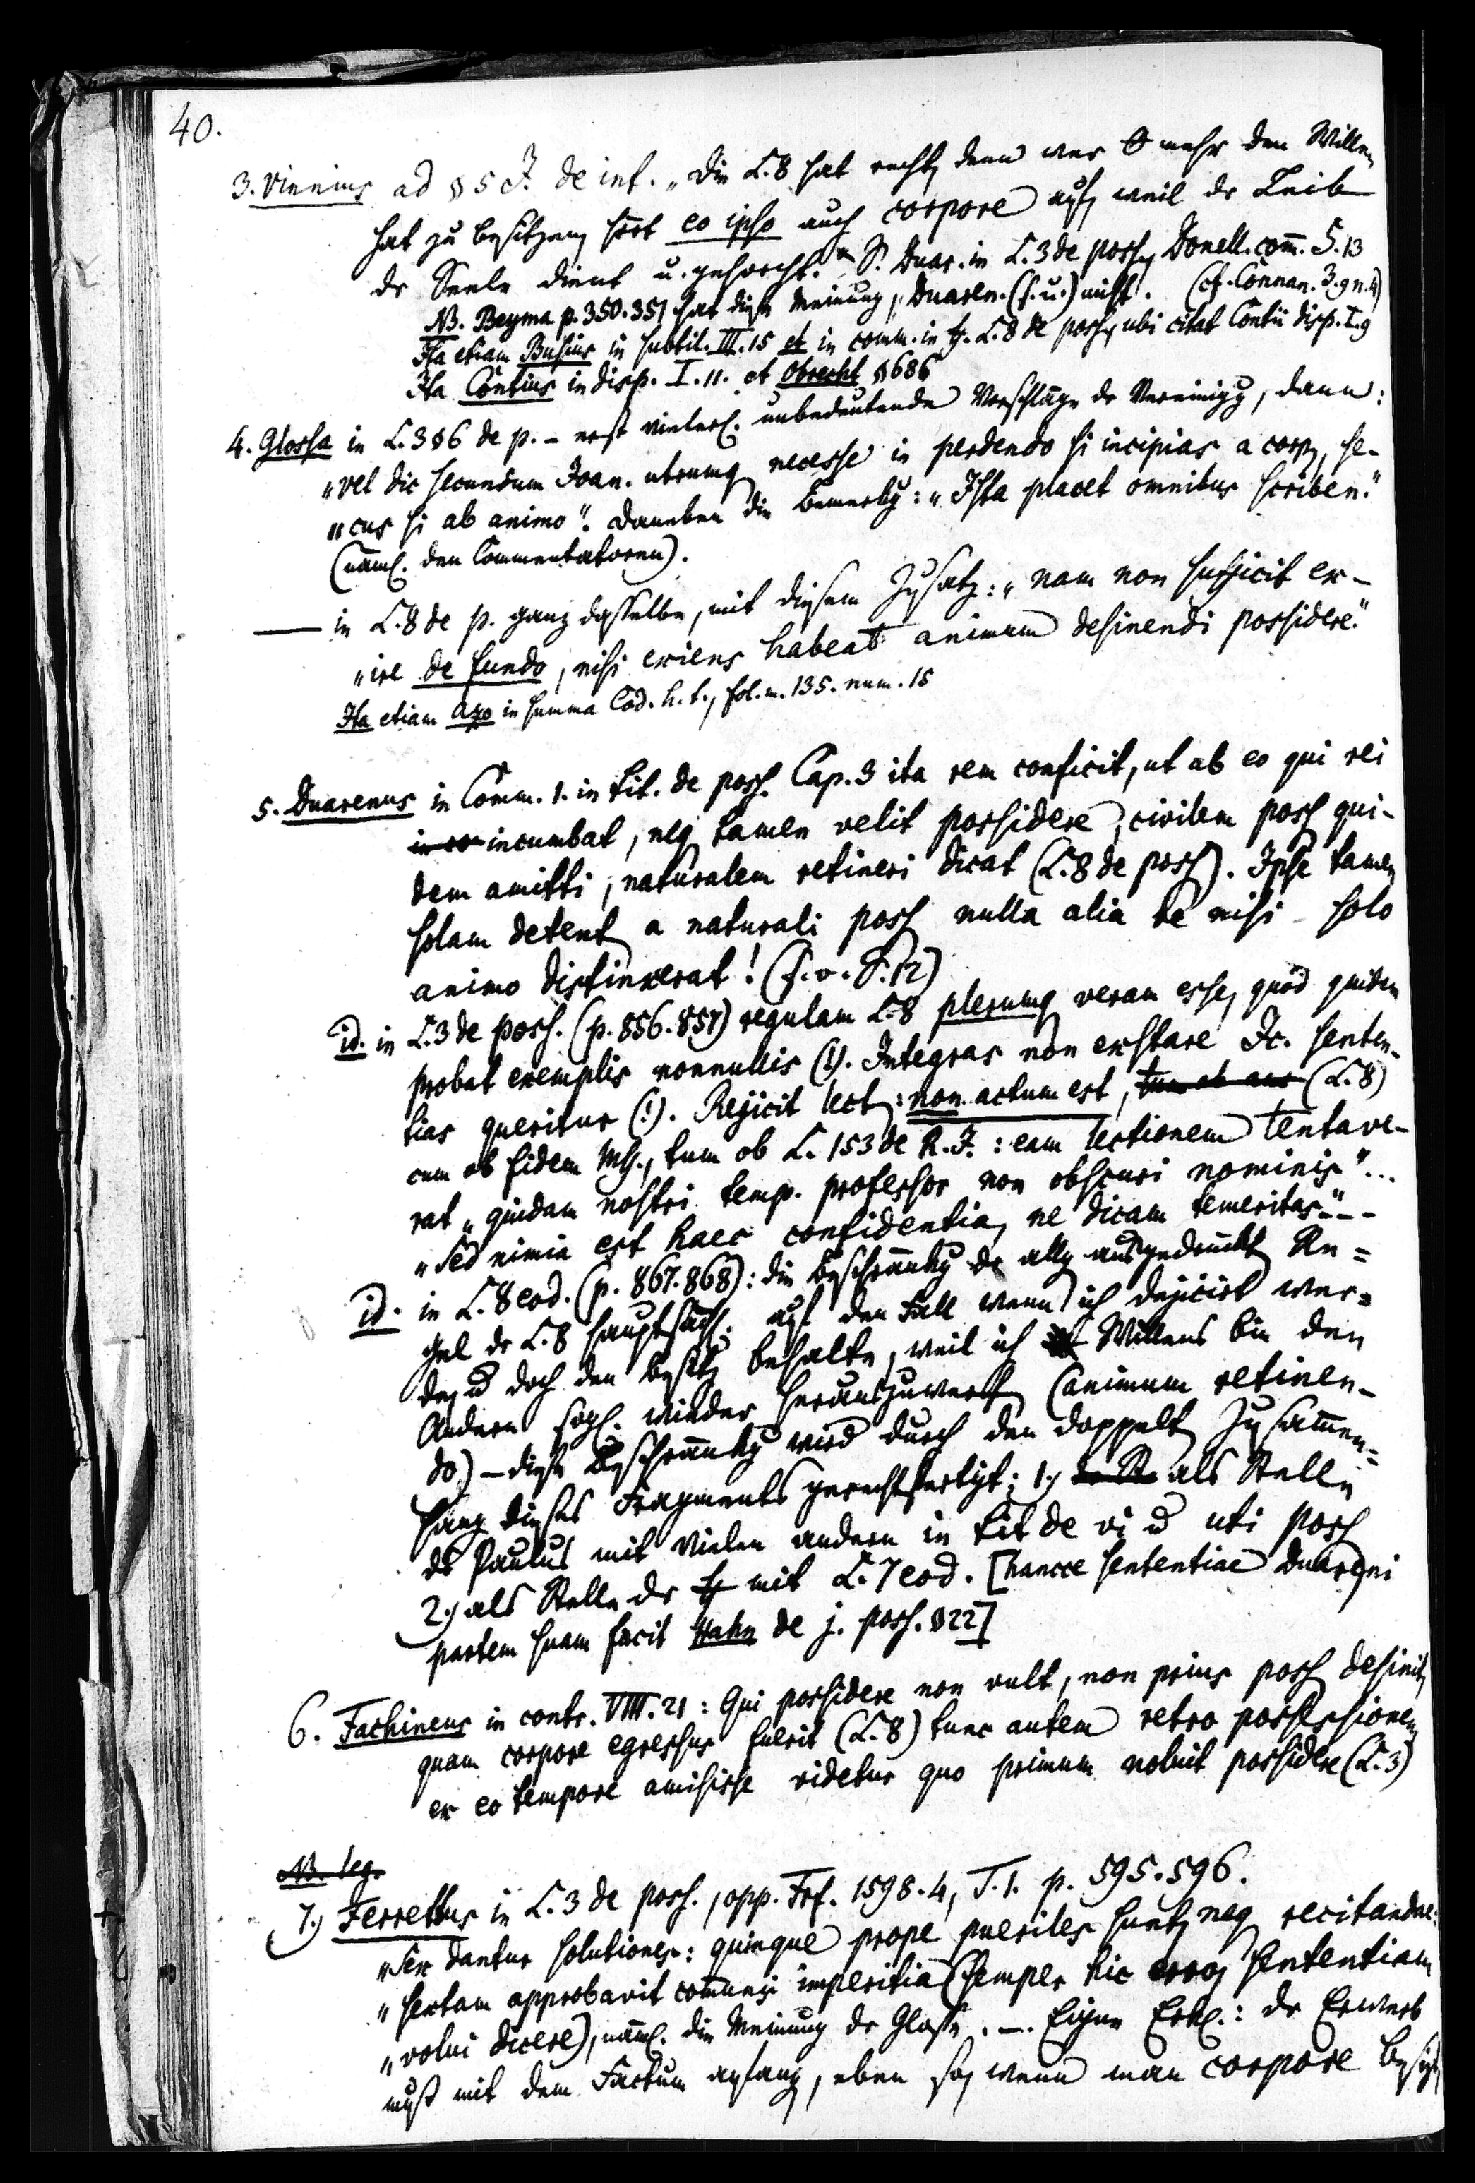 40.
3. Vinnius ad § 5 J. de int. „Die L. 8 hat recht, denn wer θ mehr den Willen
hat zu besitzen, hört eo ipso auch corpore auf, weil der Leib
der Seele dient u. gehorcht." S. Duar. in L. 3 de poss., Donell. comm. 5. 13
NB. Beyma p. 350. 351 hat diese Meinung, Duaren. (s. u.) nicht. (cf. Connan. 3. 9 n. 4)
Ita etiam Busius in subtil. III. 15 et in comm. in ff. L. 8 de poss., ubi citat Contii disp. I. 9
Ita Contius in disp. I. 11. et Obrecht § 686
4. Glossa in L. 3 § 6 de p. – erst vielerl. unbedeutende Vorschläge der Vereinigg, dann:
„vel dic secundum Joan. utrumq necesse in perdendo si incipias a corp., se-
„cus si ab animo". Daneben die Bemerkg: „Ista placet omnibus scriben."
(näml. den Commentatoren).
— in L. 8 de p. ganz dasselbe, mit diesem Zusatz: „nam non sufficit ex-
„ire de fundo, nisi exiens habeat animum desinendi possidere."
Ita etiam Azo in summa Cod. h. t., fol. m. 135. num. 15
5. Duarenus in Comm. 1. in tit. de poss. Cap. 3 ita rem conficit, ut ab eo qui rei
in eo incumbat, neq tamen velit possidere, civilem poss qui-
dem amitti, naturalem retineri dicat (L. 8 de poss). Ipse tamen
solam detent. a naturali poss nulla alia re nisi solo
animo distinxerat! (s. o. S. 12)
id. in L. 3 de poss. (p. 856. 857) regulam L. 8 plerumq veram esse, quod quidem
probat exemplis nonnullis (!). Integras non exstare Jc. senten-
tias queritur (!). Rejicit lect.: non actum est, tum ob aus (L. 8)
cum ob fidem MS., tum ob L. 153 de R. J. : eam lectionem tentave-
rat „quidam nostri temp. professor non obscuri nominis" ...
„sed nimia est haec confidentia, ne dicam temeritas" ...
id. in L. 8 eod. (p. 867. 868): die Beschränkg der allg ausgedrückt Re=
gel der L. 8 hauptsächl. auf den Fall wenn ich dejicirt wer=
de, u doch den Besitz behalte, weil ich Willens bin den
Andern sogl. wieder herauszuwerf (animum retinen-
do) – diese Beschränkg wird durch den doppelt Zusammen=
hang dieses Fragments gerechtfertigt: 1.) als Stelle
des Paulus mit vielen andern in tit de vi u uti poss
2.) als Stelle der ff mit L. 7 eod. [hancce sententiae Duareni
partem suam facit Hahn de j. poss. § 22]
6. Fachineus in contr. VIII. 21 : Qui possidere non vult, non prius poss desinit,
quam corpore egressus fuerit (L. 8) tunc autem retro possessionem
ex eo tempore amisisse videtur quo primum noluit possidere (L. 3)
NB. leg.
7.) Ferrettus in L. 3 de poss., opp. Frf. 1598. 4, T. 1. p. 595. 596.
„Sex dantur solutiones: quinque prope pueriles sunt, neq recitandae:
„sextam approbavit communis imperitia (semper hic error sententiam
„volui dicere), näml. die Meinung der Glosse. — Eigne Erkl.: der Erwerb
muß mit dem Factum anfang, eben so, wenn man corpore besitzt,